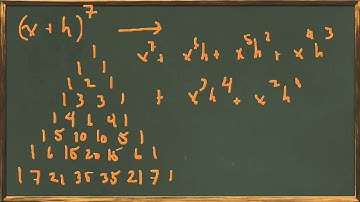 (x + h)^7 → x^7 + x^6h + x^5h^2 + x^4h^3
+ x^3h^4 + x^2h^5
1
1 1
1 2 1
1 3 3 1
1 4 6 4 1
1 5 10 10 5 1
1 6 15 20 15 6 1
1 7 21 35 35 21 7 1